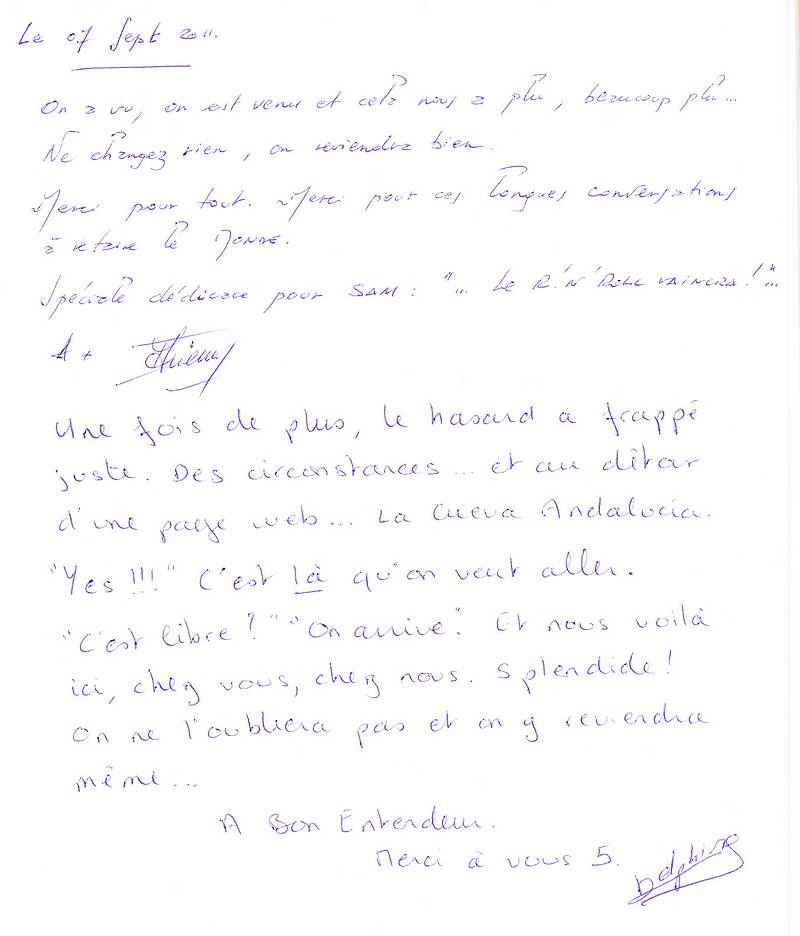 Le 07 Sept 2011.
On a vu, on est venu et cela nous a plu, beaucoup plu...
Ne changez rien, on reviendra bien.
Merci pour tout. Merci pour ces longues conversations
à refaire le MONDE.
Spéciale dédicace pour SAM : "... Le R.'N'ROLL VAINCRA !"...
A +
Thierry
Une fois de plus, le hasard a frappé
juste. Des circonstances ... et au détour
d'une page web... La Cueva Andalucia.
"Yes !!!" C'est là qu'on veut aller.
"C'est libre ?" "On arrive". Et nous voilà
ici, chez vous, chez nous. Splendide !
On ne l'oubliera pas et on y reviendra
même ...
A Bon Entendeur.
Merci à vous 5.
Delphine